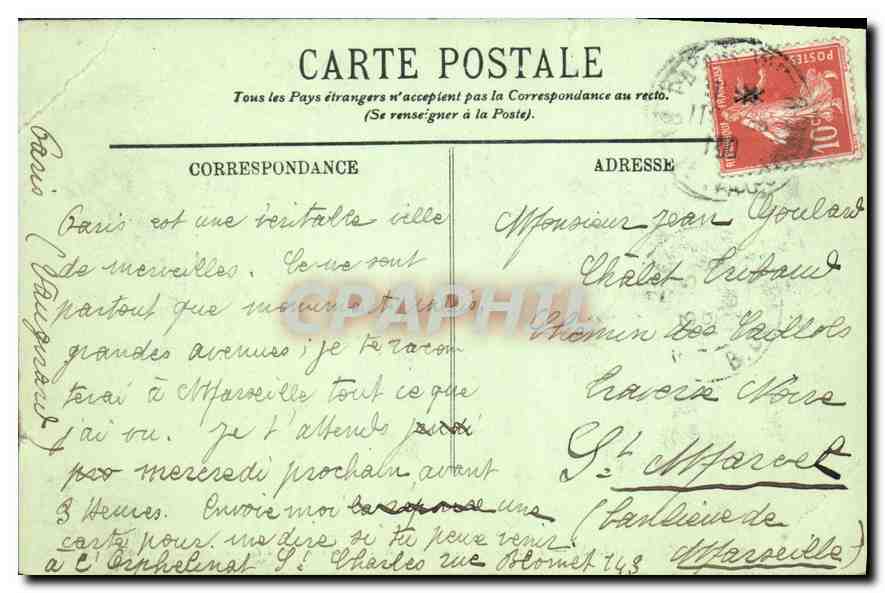 CARTE POSTALE
Tous les Pays étrangers n'acceptent pas la Correspondance au recto.
(Se renseigner à la Poste).
CORRESPONDANCE
ADRESSE
POSTES
RÉPUBLIQUE FRANÇAISE
10c
Paris (Vaugirard)
Paris est une véritable ville
de merveilles. Ce ne sont
partout que monuments
grandes avenues ; je te racon
terai à Marseille tout ce que
j'ai vu. Je t'attends jeudi
pro mercredi prochain avant
3 Heures. Envoie moi la réponse une
carte pour me dire si tu peux venir
à l'Orphelinat St Charles rue Blomet 143
Monsieur Jean Goulard
Châlet Tribaud
Chemin des Caillols
Traverse Noire
St. Marcel
(banlieue de
Marseille)
CPAPHIL